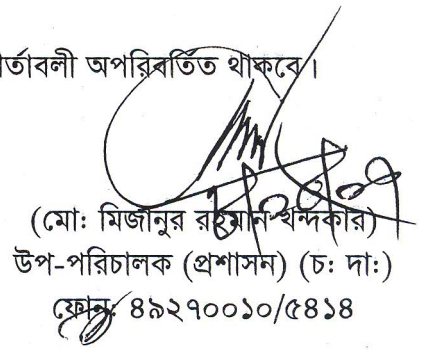 র্তাবলী অপরিবর্তিত থাকবে।
(মো: মিজানুর রহমান খন্দকার)
উপ-পরিচালক (প্রশাসন) (চ: দা:)
ফোন: ৪৯২৭০০১০/৫৪১৪